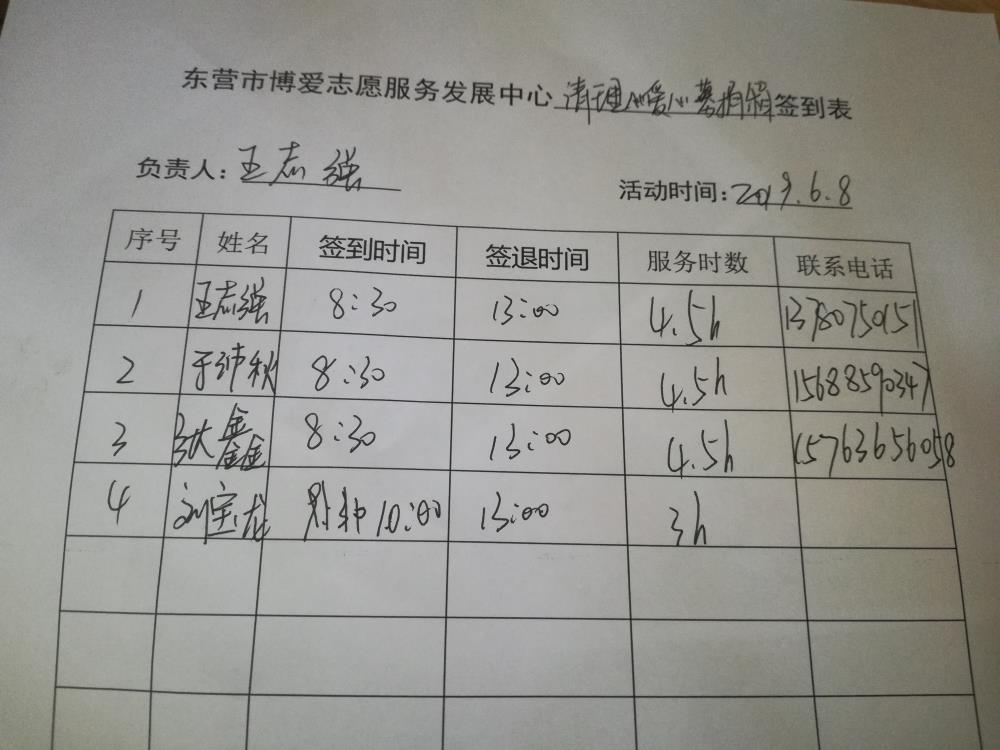 东营市博爱志愿服务发展中心清理心爱心募捐箱签到表
负责人：王志强 活动时间：2019.6.8
序号 姓名 签到时间 签退时间 服务时数 联系电话
1 王志强 8:30 13:00 4.5h 13780750151
2 于神秋 8:30 13:00 4.5h 15688590347
3 张鑫 8:30 13:00 4.5h 15763656058
4 刘宝龙 10:00 13:00 3h